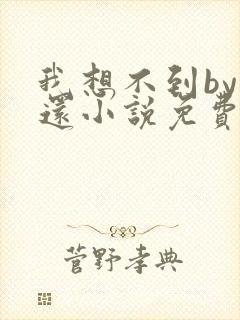 我想不到by
還小說免費
菅野孝典